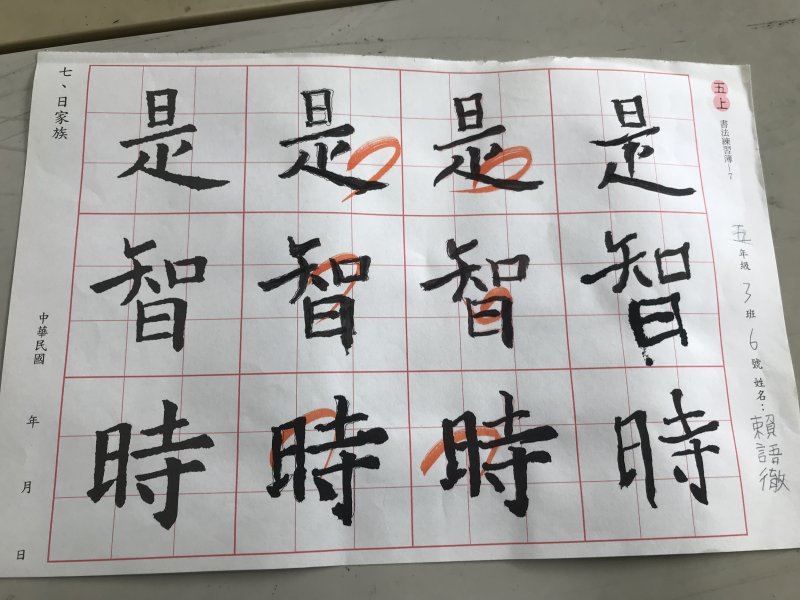 五上
書法練習簿-7
五年級 3班 6號 姓名：賴語徹
是 是 是 是
智 智 智 智
時 時 時 時
七、日家族
中華民國 年 月 日